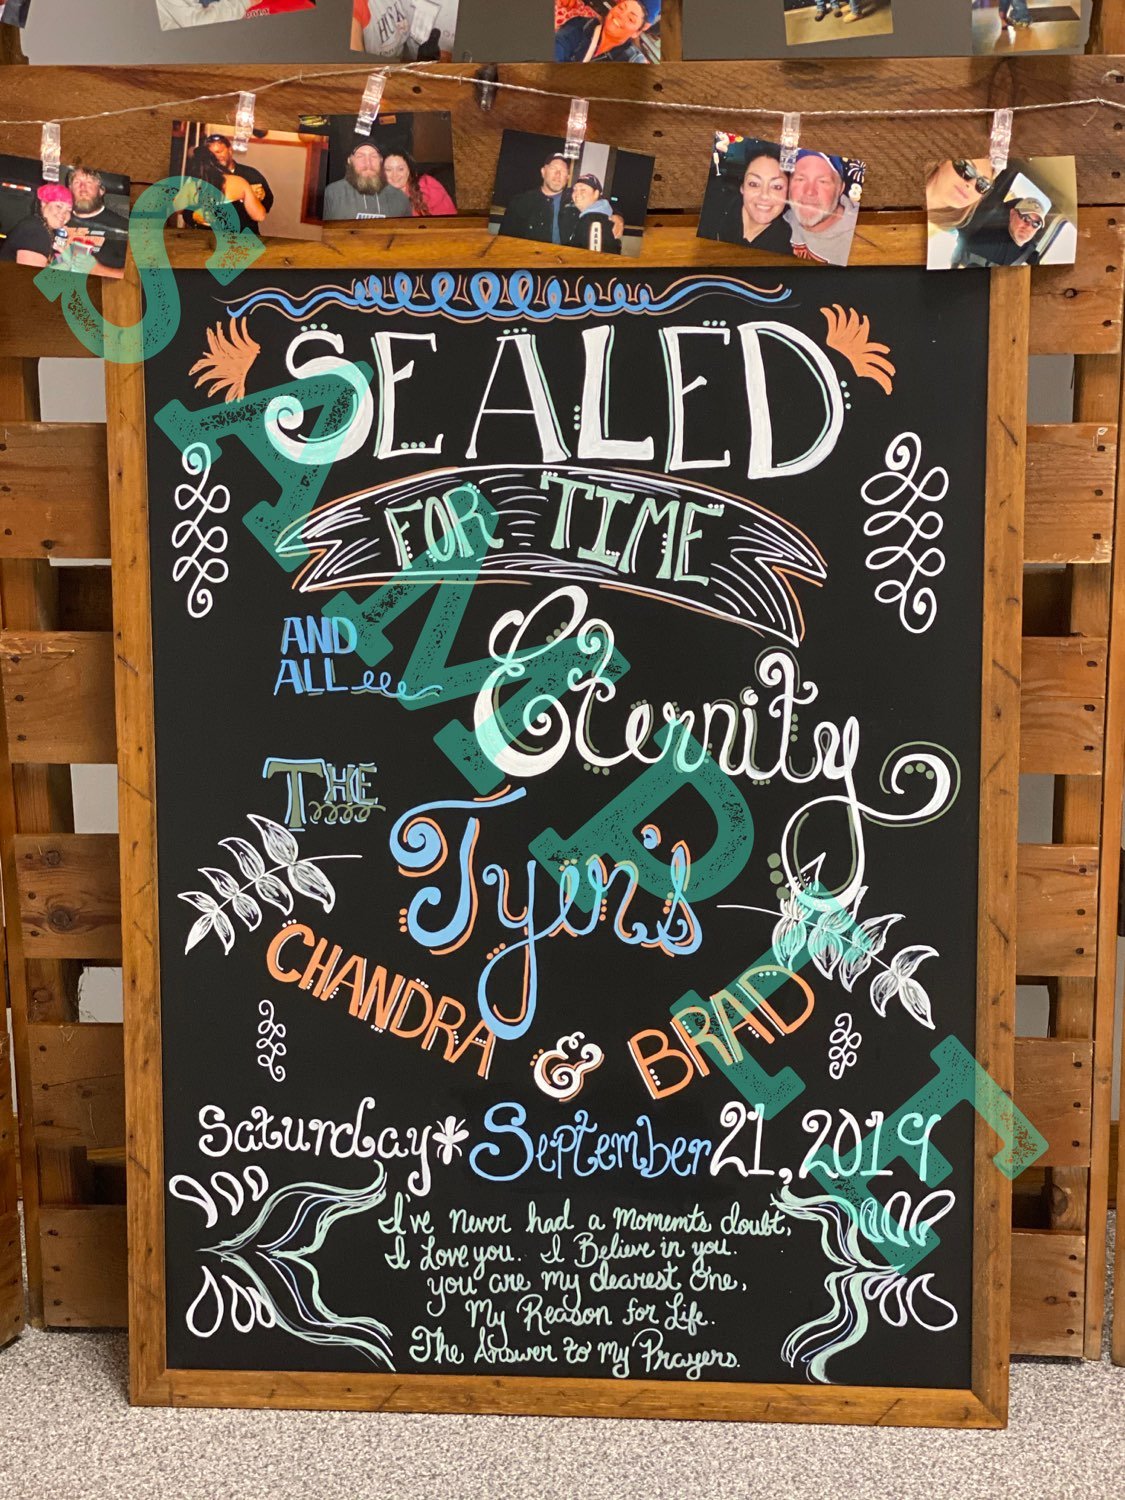 SEALED
FOR TIME
AND
ALL
Eternity
THE
Tyen's
CHANDRA & BRAD
Saturday * September 21, 2019
I've never had a moments doubt,
I Love you. I Believe in you.
you are my dearest One,
My Reason for Life.
The Answer to my Prayers.
SAMPLE